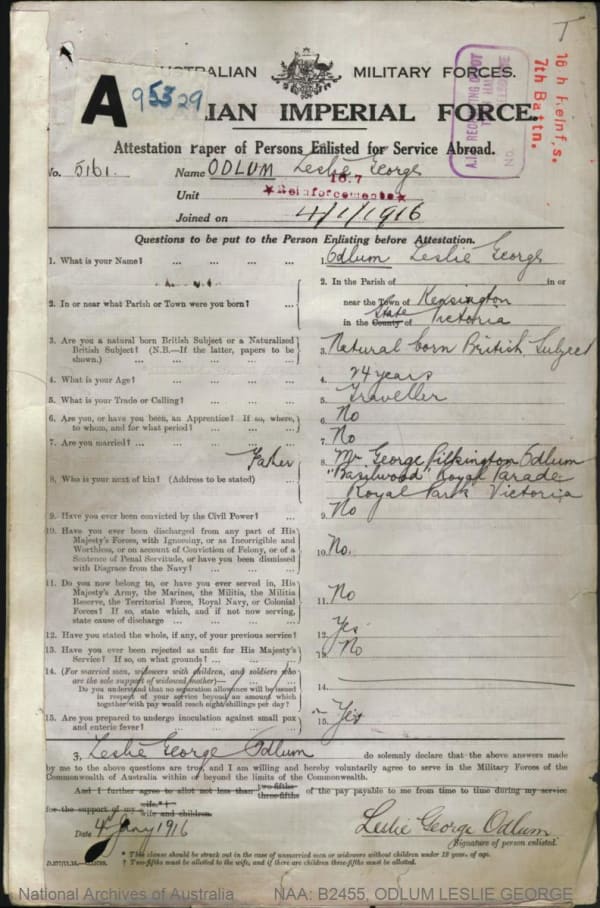 AUSTRALIAN MILITARY FORCES.
A 95329
AUSTRALIAN IMPERIAL FORCE.
16 h Reinf,s.
7th Battn.
Attestation Paper of Persons Enlisted for Service Abroad.
No. 5161. Name ODLUM Leslie George
Unit 16.7
★Reinforcements★
Joined on 4/1/1916
Questions to be put to the Person Enlisting before Attestation.
1. What is your Name? ... ... ... ... 1. Odlum Leslie George
2. In or near what Parish or Town were you born? ... 2. In the Parish of in or
near the Town of Kensington
in the County of State Victoria
3. Are you a natural born British Subject or a Naturalized
British Subject? (N.B.—If the latter, papers to be
shown.) ... ... ... ... 3. Natural born British Subject
4. What is your Age? ... ... ... ... 4. 24 years
5. What is your Trade or Calling? ... ... ... 5. Traveller
6. Are you, or have you been, an Apprentice? If so, where,
to whom, and for what period? ... ... ... 6. No
7. Are you married? ... ... ... ... 7. No
8. Who is your next of kin? (Address to be stated) ... Father 8. Mr George Pilkington Odlum
"Basilwood" Royal Parade
Royal Park Victoria
9. Have you ever been convicted by the Civil Power? ... 9. No
10. Have you ever been discharged from any part of His
Majesty's Forces, with Ignominy, or as Incorrigible and
Worthless, or on account of Conviction of Felony, or of a
Sentence of Penal Servitude, or have you been dismissed
with Disgrace from the Navy? ... ... ... 10. No.
11. Do you now belong to, or have you ever served in, His
Majesty's Army, the Marines, the Militia, the Militia
Reserve, the Territorial Force, Royal Navy, or Colonial
Forces? If so, state which, and if not now serving,
state cause of discharge ... ... ... 11. No
12. Have you stated the whole, if any, of your previous service? 12. Yes
13. Have you ever been rejected as unfit for His Majesty's
Service? If so, on what grounds? ... ... ... 13. No
14. (For married men, widowers with children, and soldiers who
are the sole support of widowed mother)—
Do you understand that no separation allowance will be issued
in respect of your service beyond an amount which
together with pay would reach eight shillings per day? 14.
15. Are you prepared to undergo inoculation against small pox
and enteric fever? ... ... ... ... 15. Yes
I, Leslie George Odlum do solemnly declare that the above answers made
by me to the above questions are true, and I am willing and hereby voluntarily agree to serve in the Military Forces of the
Commonwealth of Australia within or beyond the limits of the Commonwealth.
And I further agree to allot not less than two-fifths three-fifths of the pay payable to me from time to time during my service
for the support of my wife.*† wife and children.
Date 4 Jany 1916 Leslie George Odlum
Signature of person enlisted.
* This clause should be struck out in the case of unmarried men or widowers without children under 18 years of age.
† Two-fifths must be allotted to the wife, and if there are children three-fifths must be allotted.
National Archives of Australia NAA: B2455, ODLUM LESLIE GEORGE